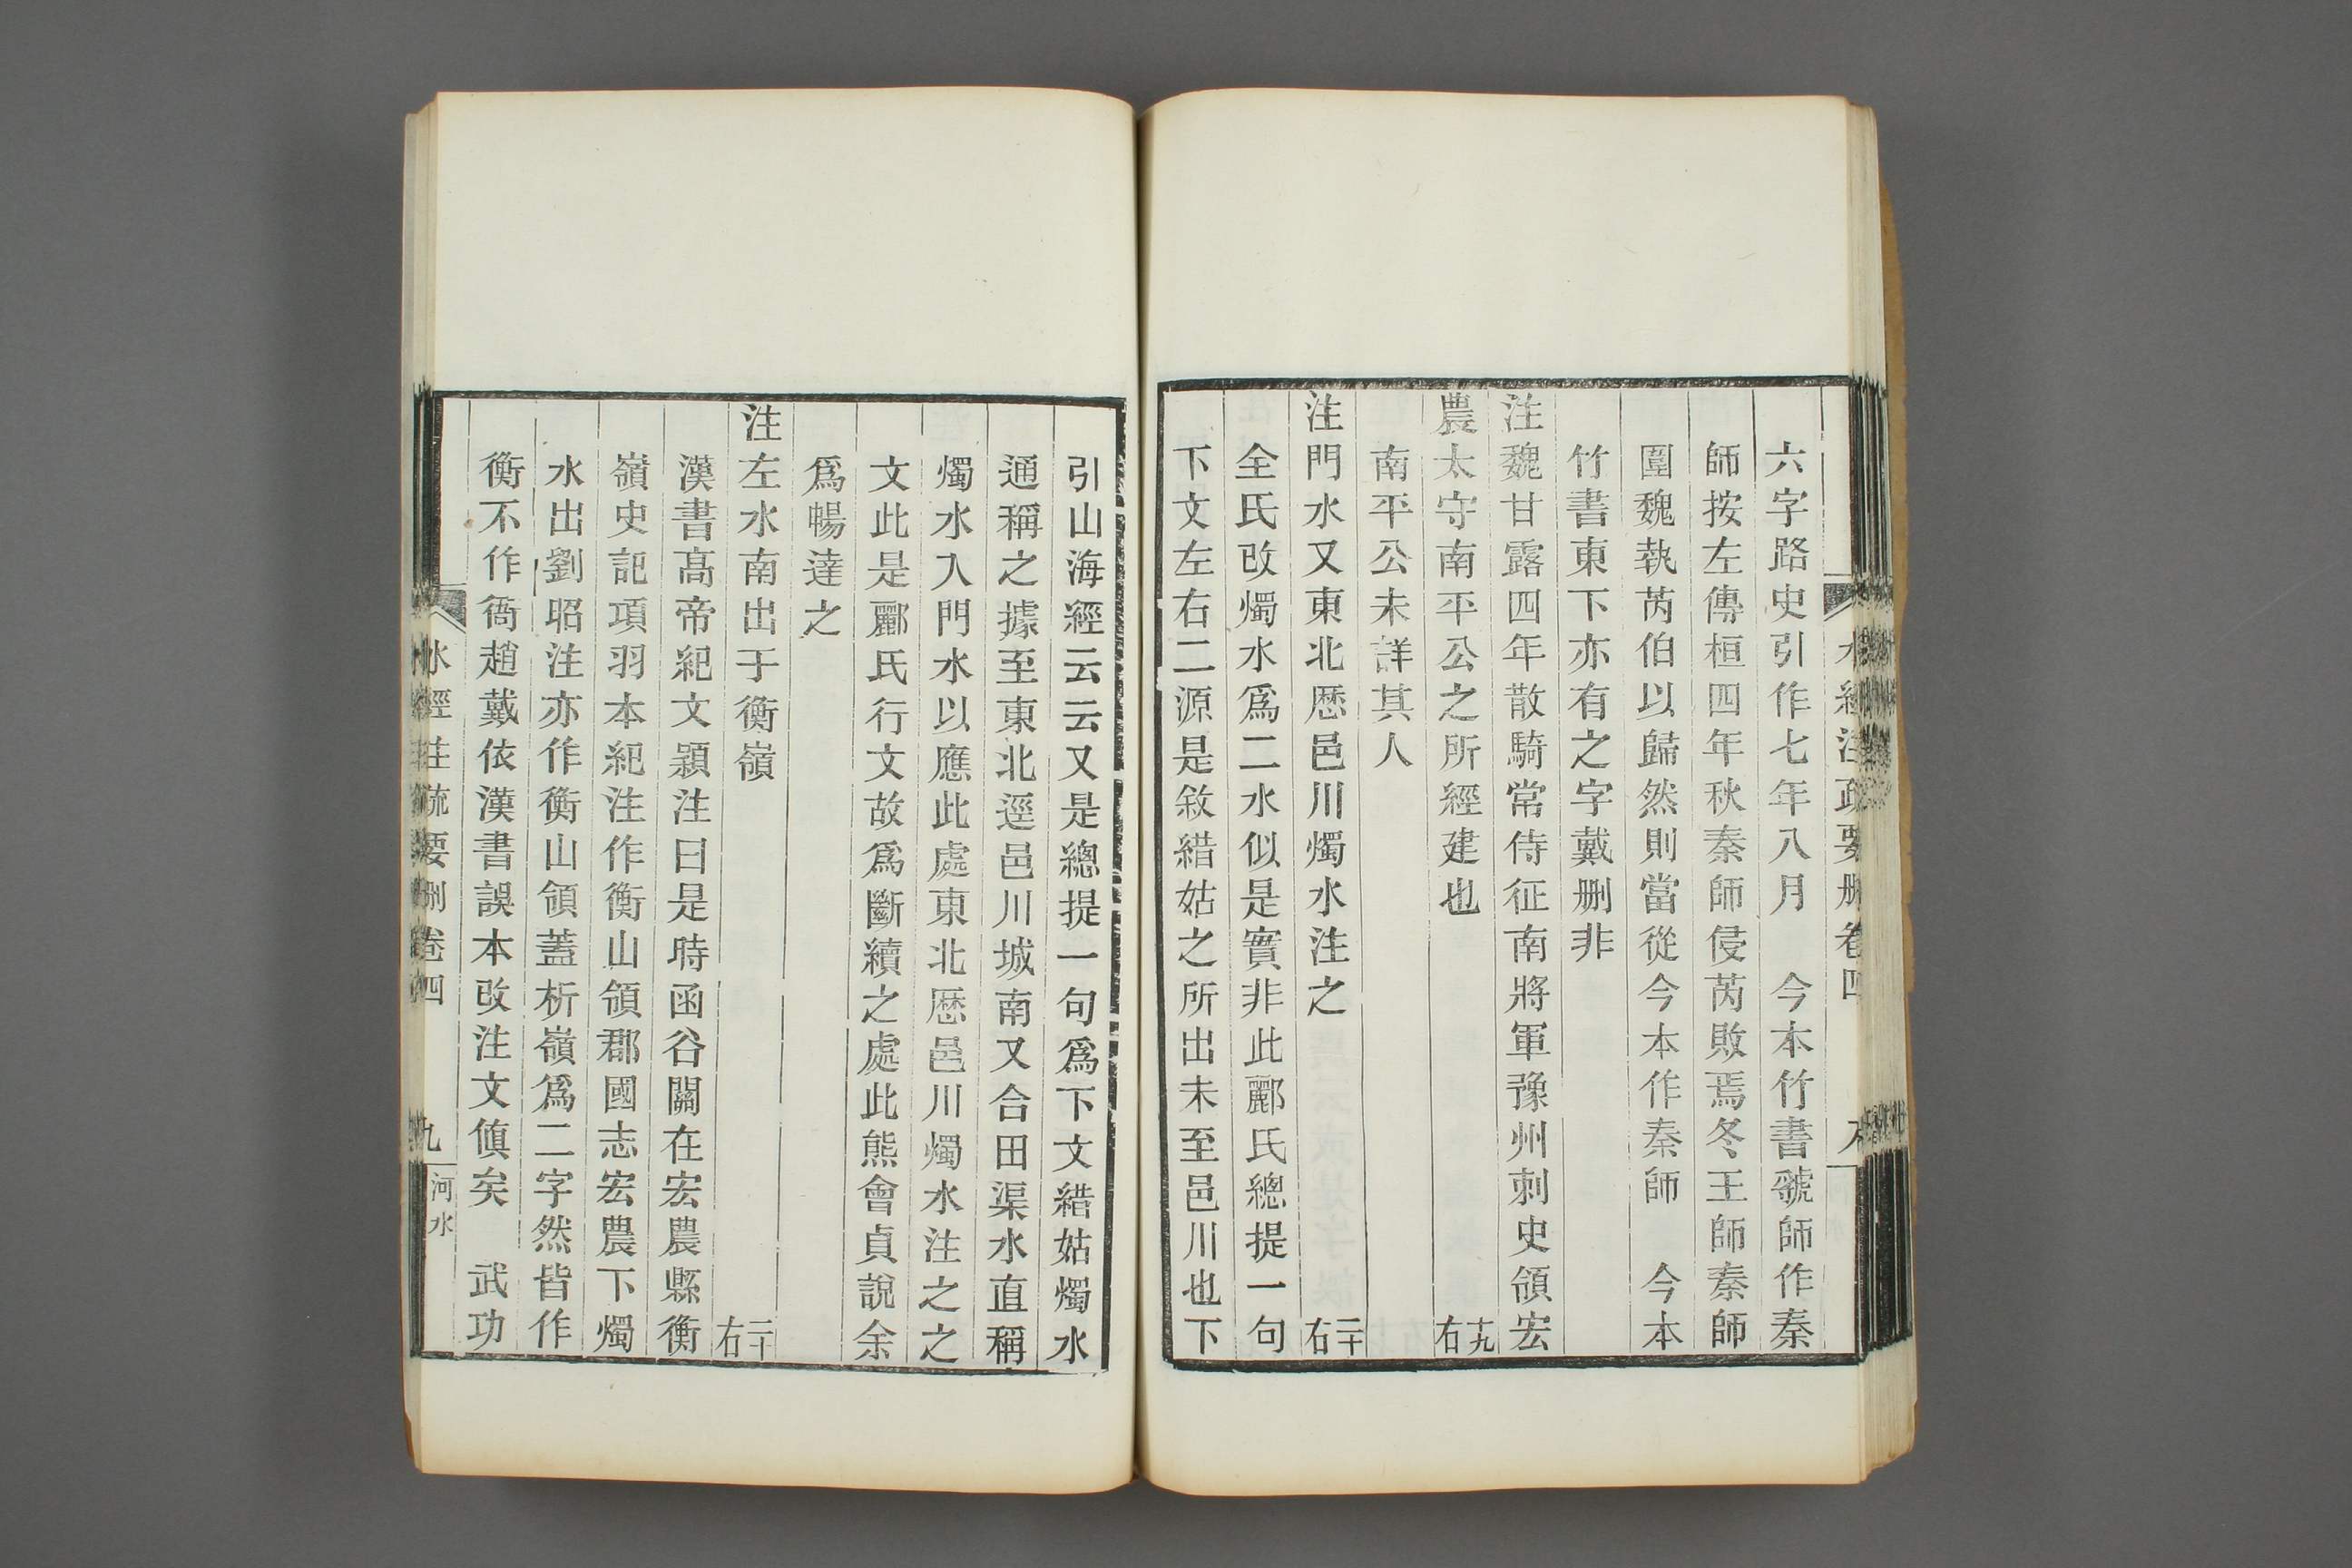 水經注疏要刪卷四
六字路史引作七年八月　今本竹書虢師作秦
師按左傳桓四年秋秦師侵芮敗焉冬王師秦師
圍魏執芮伯以歸然則當從今本作秦師　今本
竹書東下亦有之字戴刪非
注魏甘露四年散騎常侍征南將軍豫州刺史領宏
農太守南平公之所經建也　十九右
南平公未詳其人
注門水又東北歷邑川燭水注之　二十右
全氏改燭水爲二水似是實非此酈氏總提一句
下文左右二源是敘緒姑之所出未至邑川也下
引山海經云云又是總提一句爲下文緒姑燭水
通稱之據至東北逕邑川城南又合田渠水直稱
燭水入門水以應此處東北歷邑川燭水注之之
文此是酈氏行文故爲斷續之處此熊會貞說余
爲暢達之
注左水南出于衡嶺　二十右
漢書高帝紀文潁注曰是時函谷關在宏農縣衡
嶺史記項羽本紀注作衡山領郡國志宏農下燭
水出劉昭注亦作衡山領蓋析嶺爲二字然皆作
衡不作衙趙戴依漢書誤本改注文傎矣　武功
水經注疏要刪卷四　九　河水